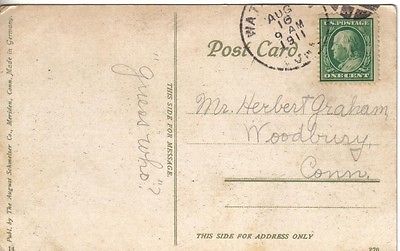 Post Card.
WAT
AUG
16
9 AM
1911
U.S. POSTAGE
ONE CENT
Mr. Herbert Graham,
Woodbury,
Conn.
"Guess who?"
THIS SIDE FOR MESSAGE.
THIS SIDE FOR ADDRESS ONLY
Publ. by The August Schmelzer Co., Meriden, Conn. Made in Germany.